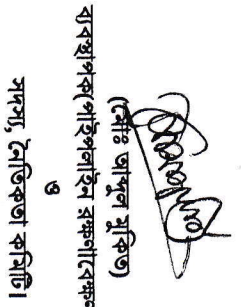 (মোঃ আব্দুল মুকিত)
ব্যবস্থাপক(পাইপলাইন রক্ষণাবেক্ষণ
ও
সদস্য, নৈতিকতা কমিটি।